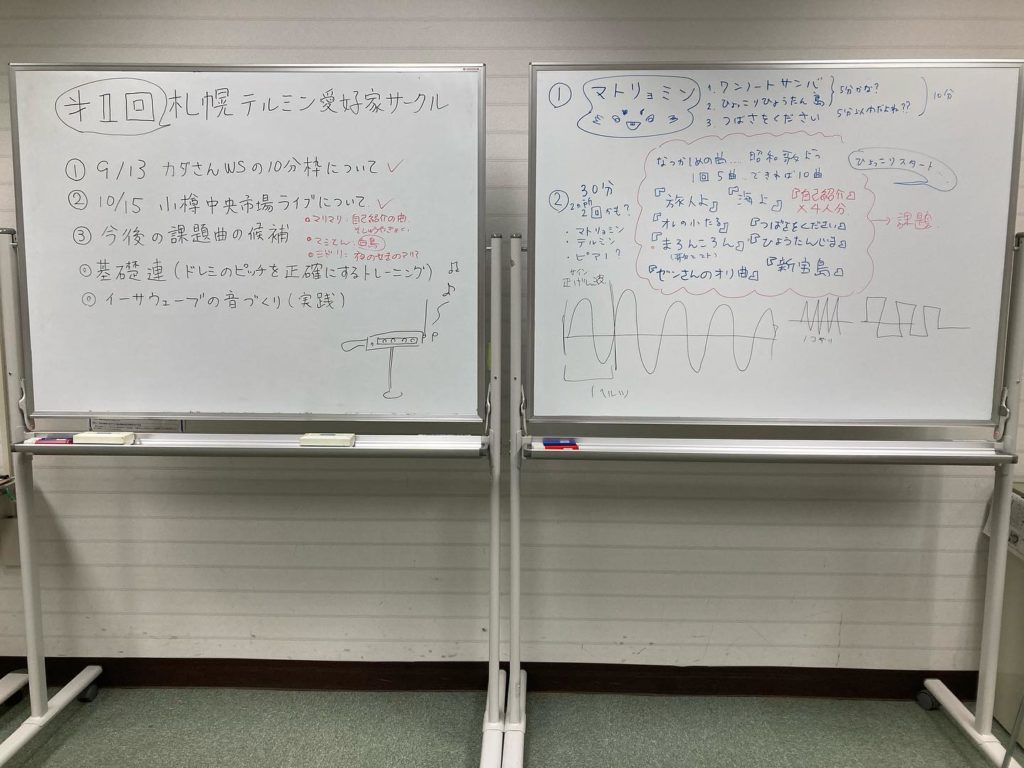 㐧11回 札幌テルミン愛好家サークル
① 9/13 カダさんWSの10分枠について ✓
② 10/15 小樽中央市場ライブについて ✓
③ 今後の課題曲の候補
・マリマリ:自己紹介の曲
・てらてん:白鳥
・ミドリ:夜の女王のアリア
◎ 基礎連(ドレミのピッチを正確にするトレーニング)
◎ イーサウェーブの音づくり(実践)
① マトリョミン
1. ワンノートサンバ
2. ひょっこりひょうたん島
5分かな?
3. つばさをください 5分以内だよね??
10分
なつかしめの曲…昭和歌ようひょっこりスタート…
1回5曲…できれば10曲
② 30分
2回かも?
・マトリョミン
・テルミン
・ピアノ?
『旅人よ』『海よ』『自己紹介』×4人分
『オレの小たる』『つばさをください』
『まろんころん』『ひょうたんじま』
『ゼンさんのオリ曲』『新宝島』
→ 課題
サイン
正げん波
1ヘルツ
ノコギリ